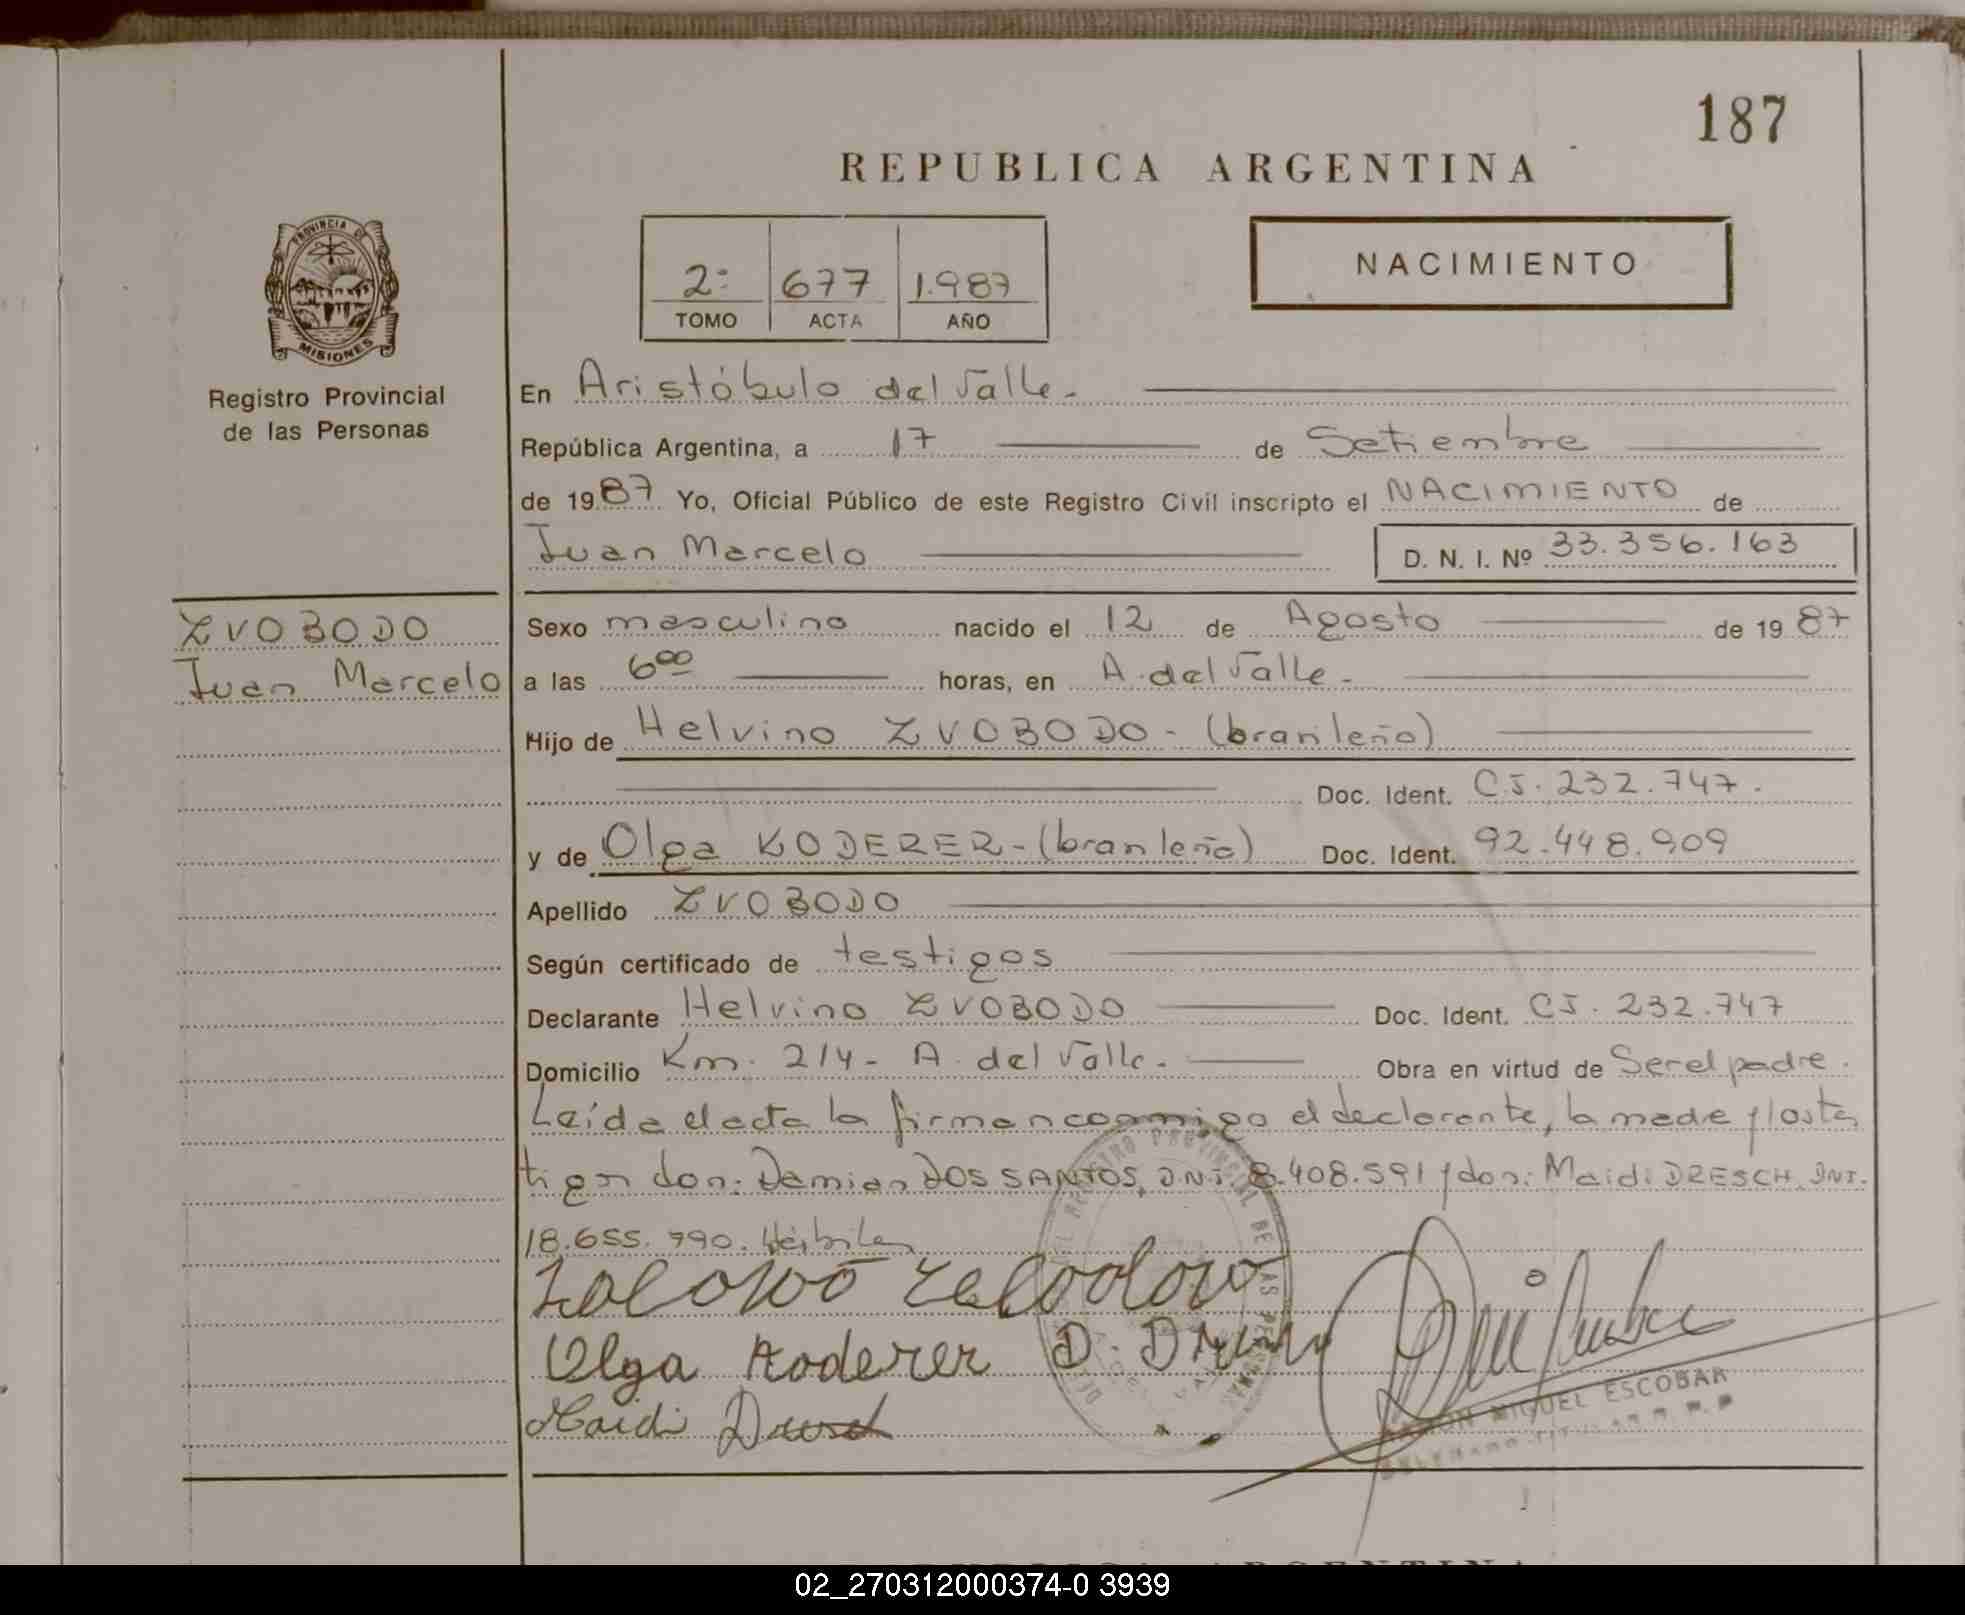 187
REPUBLICA ARGENTINA
PROVINCIA DE
MISIONES
2º 677 1.987
TOMO ACTA AÑO
NACIMIENTO
Registro Provincial
de las Personas
En Aristóbulo del Valle.-
República Argentina, a 17 de Setiembre
de 1987 Yo, Oficial Público de este Registro Civil inscripto el NACIMIENTO de
Juan Marcelo D. N. I. Nº 33.356.163
ZVOBODO
Juan Marcelo
Sexo masculino nacido el 12 de Agosto de 1987
a las 6oo horas, en A. del Valle.-
Hijo de Helvino ZVOBODO - (brasileño)
Doc. Ident. C.I. 232.747.
y de Olga KODERER - (brasileña) Doc. Ident. 92.448.909
Apellido ZVOBODO
Según certificado de testigos
Declarante Helvino ZVOBODO Doc. Ident. CI. 232.747
Domicilio Km. 214 - A. del Valle.- Obra en virtud de Ser el padre.
Leída el acta la firman conmigo el declarante, la madre y los tes
tigos don: Damian DOS SANTOS, D.N.I. 8.408.591 y don: Maidi DRESCH. DNI.
18.655.790. Hábiles
Olga Koderer
Maidi
MIGUEL ESCOBAR
02_270312000374-0 3939